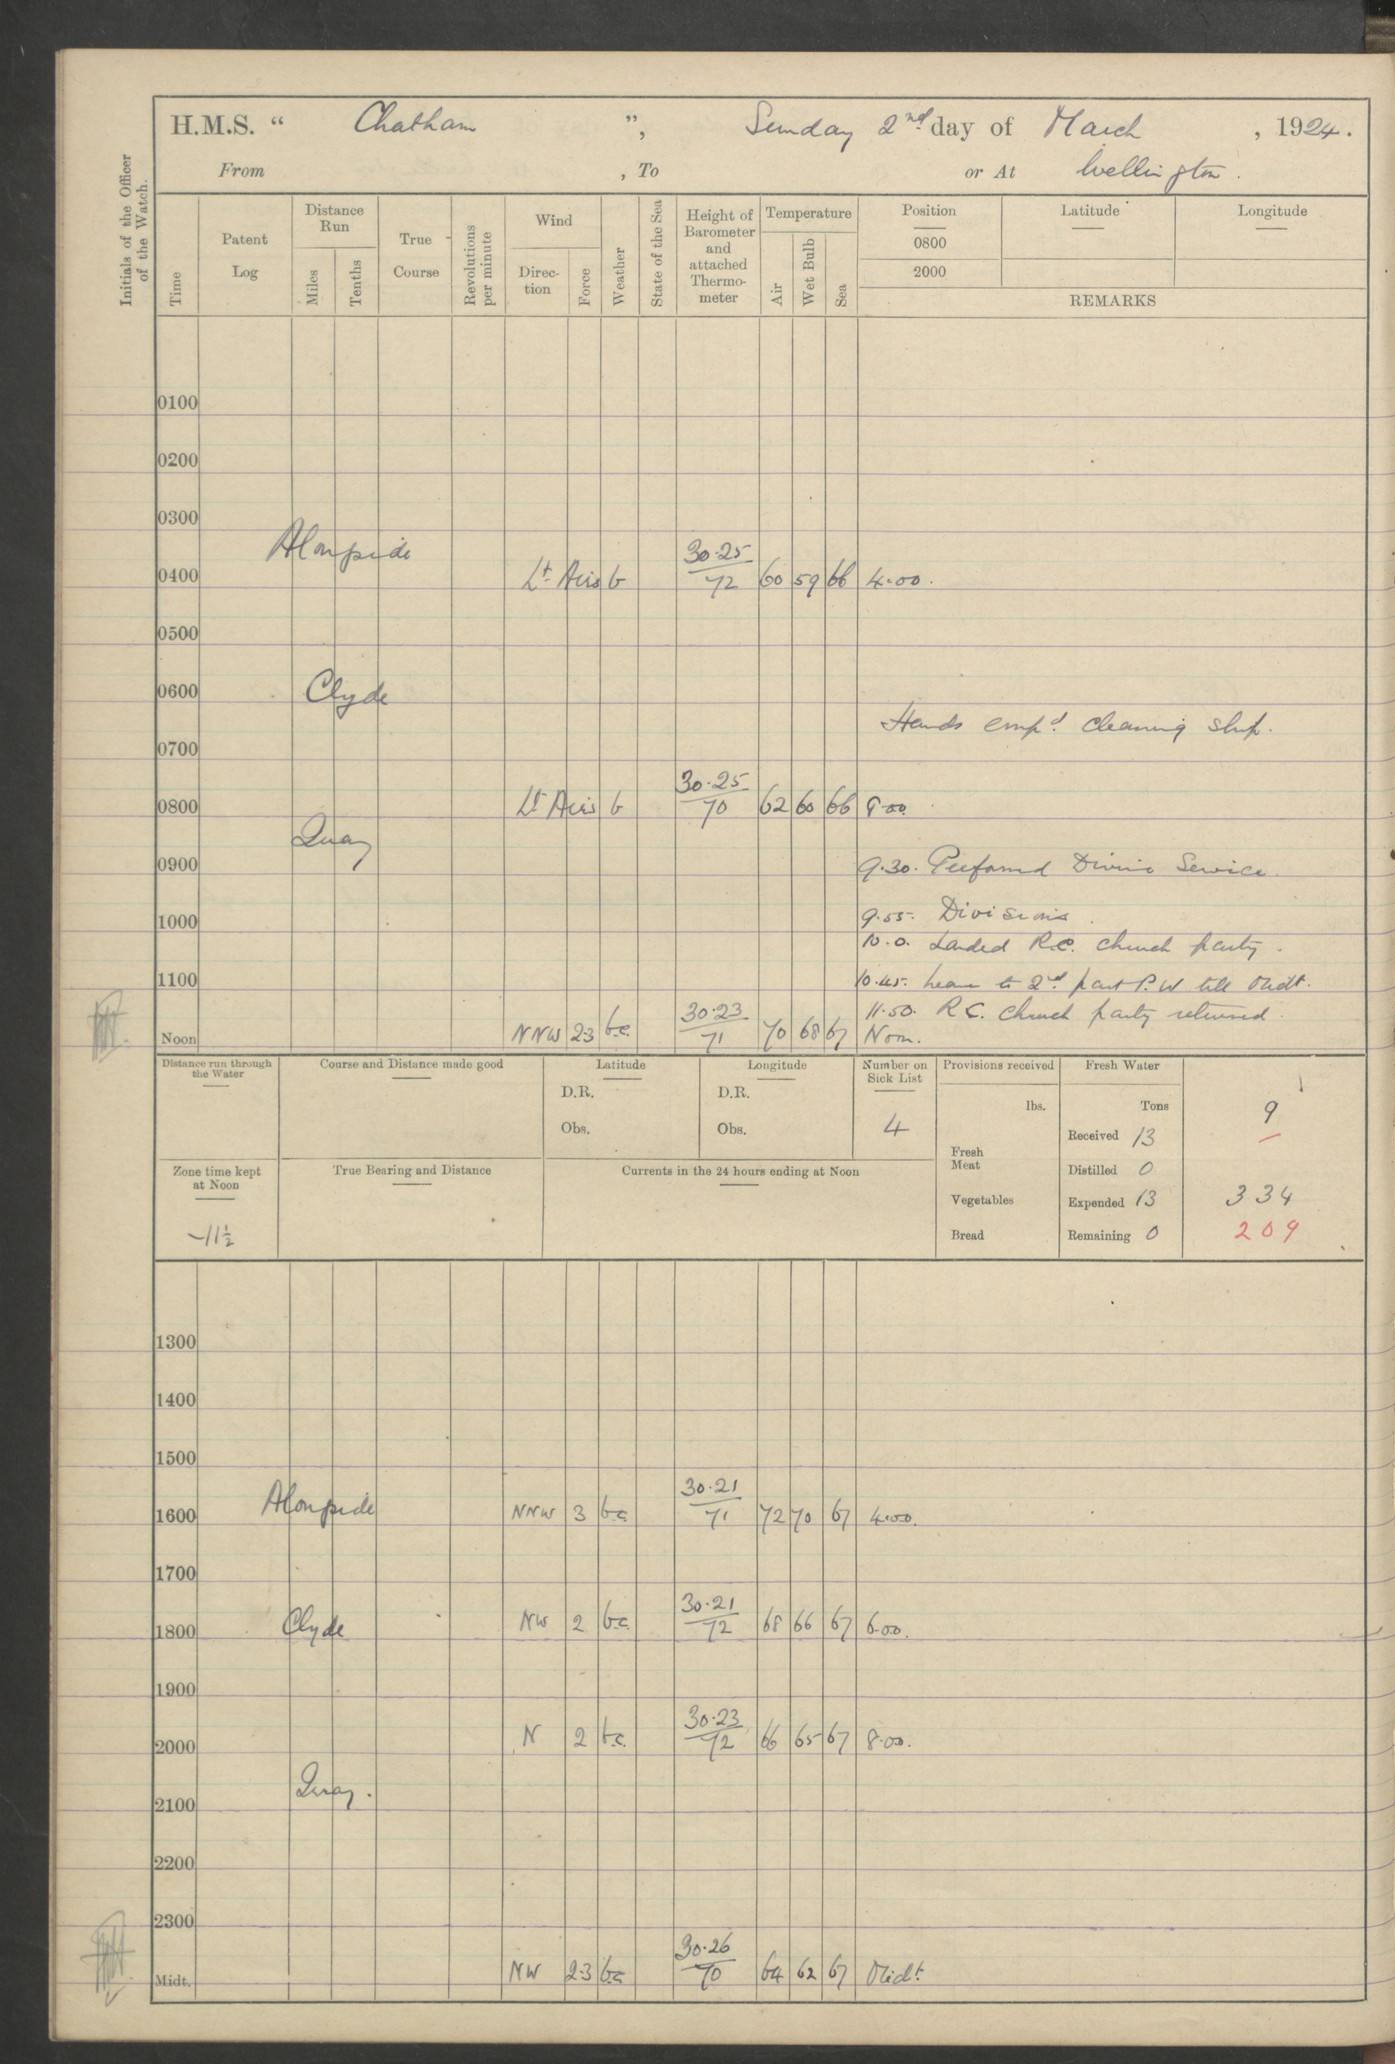 H.M.S. “ Chatham ”, Sunday 2nd day of March , 1924.
From , To or At Wellington.
Initials of the Officer of the Watch.
Time
Patent Log
Distance Run
Miles
Tenths
True Course
Revolutions per minute
Wind
Direction
Force
Weather
State of the Sea
Height of Barometer and attached Thermometer
Temperature
Air
Wet Bulb
Sea
Position Latitude Longitude
0800
2000
REMARKS
0100
0200
0300
Alongside
0400 Lt Airs b 30.25/72 60 59 66 4.00.
0500
Clyde
0600
Hands emp'd. cleaning ship.
0700
0800 Lt Airs b 30.25/70 62 60 66 8.00
Quay
0900 9.30. Performed Divine Service.
1000 9.55. Divisions.
10.0. Landed R.C. church party.
1100 10.45. Leave to 2nd part P.W till Midt.
11.50. R.C. Church party returned.
Noon NNW 2-3 b.c. 30.23/71 70 68 67 Noon.
Distance run through the Water
Course and Distance made good
Latitude
D.R.
Obs.
Longitude
D.R.
Obs.
Number on Sick List
4
Provisions received
lbs.
Fresh Meat
Vegetables
Bread
Fresh Water
Tons
Received 13
Distilled 0
Expended 13
Remaining 0
9
334
209
Zone time kept at Noon
-11½
True Bearing and Distance
Currents in the 24 hours ending at Noon
1300
1400
1500
Alongside
1600 NNW 3 b.c. 30.21/71 72 70 67 4.00.
1700
Clyde
1800 NW 2 b.c. 30.21/72 68 66 67 6.00.
1900
2000 N 2 b.c. 30.23/72 66 65 67 8.00.
Quay.
2100
2200
2300
Midt. NW 2-3 b.c. 30.26/70 64 62 67 Midt